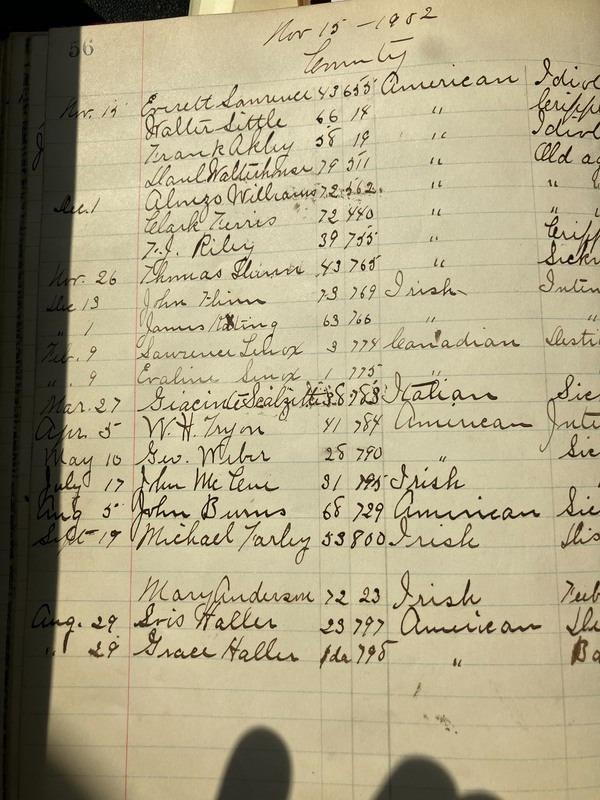 56
Nov 15 - 1902
County
Nov. 15 Everett Lawrence 43 655 American Idiot
Walter Little 66 14 " Cripple
Frank Akley 58 19 " Idiot
79 511 " Old ag
Dec. 1 Alonzo Williams 72 562 " " "
Clark Ferris 72 440 " " "
T. J. Riley 39 755 " Cripp
Nov. 26 Thomas 43 765 " Sickn
Dec 13 John Flinn 73 769 Irish Intem
" 1 James 63 766 " "
Feb. 9 Lawrence Lenox 3 774 Canadian Desti
" 9 Evaline Lenox 1 775 "
Mar. 27 Giacinte 38 783 Italian Sic
Apr. 5 W. H. Tryon 41 784 American Inte
May 10 Geo. Weber 28 790 " Sic
July 17 John 31 795 Irish
Aug 5 John Burns 68 729 American Sic
Sept 19 Michael Farley 53 800 Irish Dis
Mary Anderson 72 23 Irish Feeb
Aug. 29 Lois Haller 23 797 American De
" 29 Grace Haller 1 da 798 " Ba